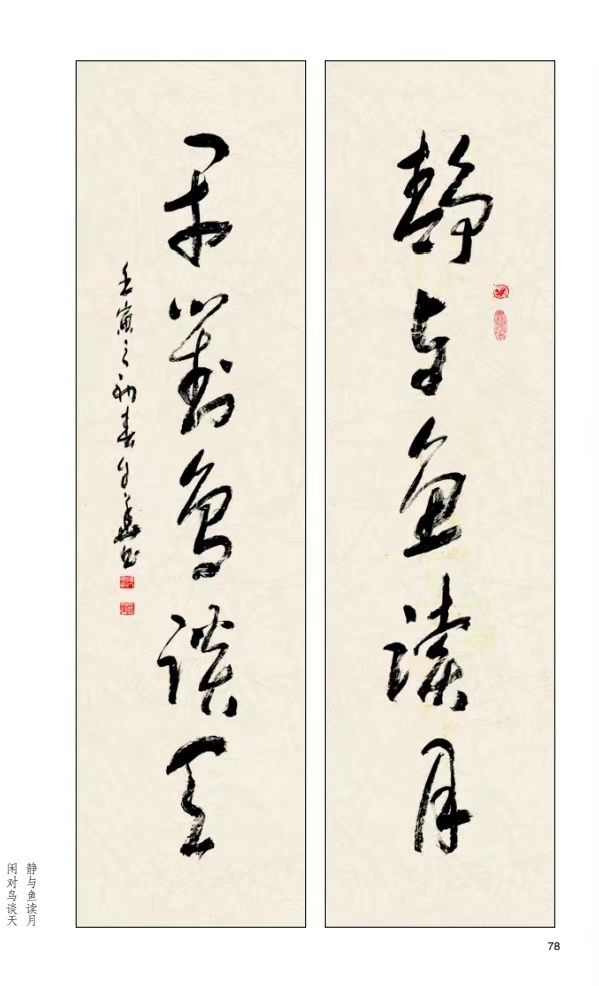 静与鱼读月
闲对鸟谈天
壬寅之初春
静与鱼读月
闲对鸟谈天
78